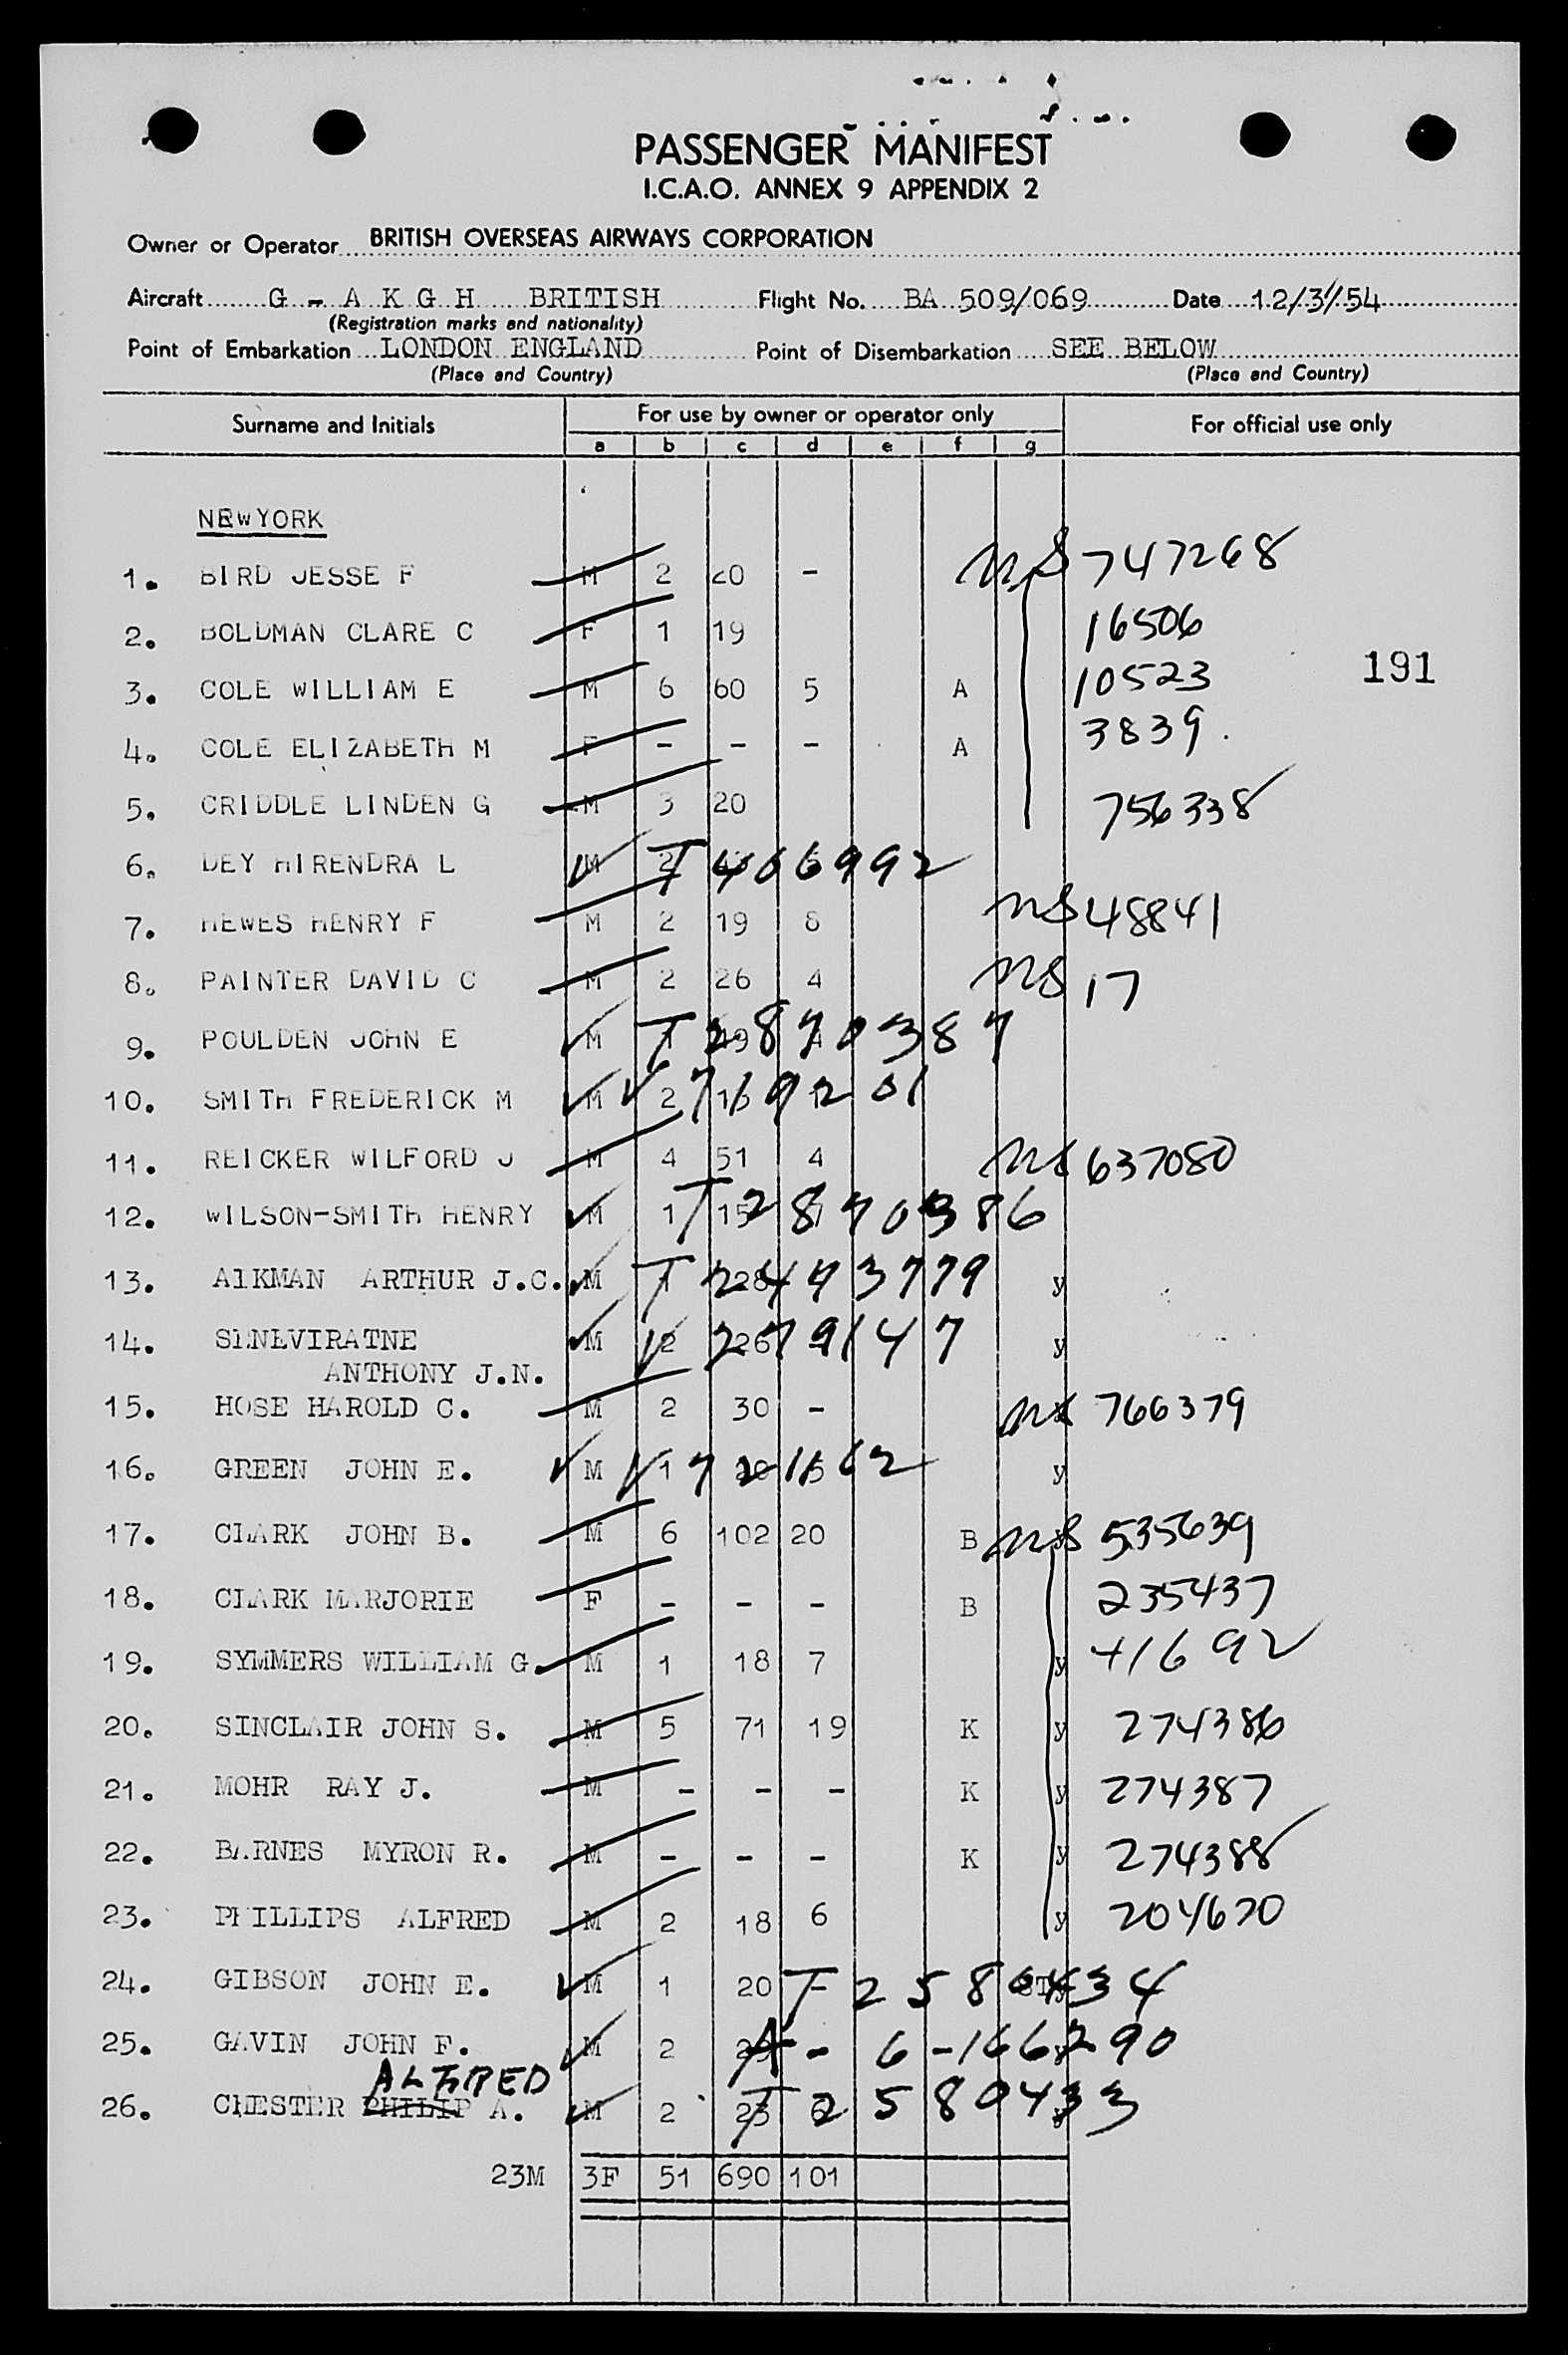 PASSENGER MANIFEST
I.C.A.O. ANNEX 9 APPENDIX 2
Owner or Operator BRITISH OVERSEAS AIRWAYS CORPORATION
Aircraft G - A K G H BRITISH Flight No. BA 509/069 Date 12/3/54
(Registration marks and nationality)
Point of Embarkation LONDON ENGLAND Point of Disembarkation SEE BELOW
(Place and Country) (Place and Country)
Surname and Initials For use by owner or operator only For official use only
a b c d e f g
NEWYORK
1. BIRD JESSE F M 2 20 - 747268
2. BOLDMAN CLARE C F 1 19 16506
191
3. COLE WILLIAM E M 6 60 5 A 10523
4. COLE ELIZABETH M F - - - A 3839.
5. CRIDDLE LINDEN G M 3 20 756338
6. DEY HIRENDRA L M 2 T 406992
7. HEWES HENRY F M 2 19 8 48841
8. PAINTER DAVID C M 2 26 4 17
9. POULDEN JOHN E M T 2870387
10. SMITH FREDERICK M M 2 7169201
11. REICKER WILFORD J M 4 51 4 637080
12. WILSON-SMITH HENRY M 1 T 2870386
13. AIKMAN ARTHUR J.C. M T 2443779 y
14. SENEVIRATNE M 2 26 V 279147 y
ANTHONY J.N.
15. HOSE HAROLD C. M 2 30 - 766379
16. GREEN JOHN E. M 1 V 721162 y
17. CLARK JOHN B. M 6 102 20 B 535639
18. CLARK MARJORIE F - - - B 235437
19. SYMMERS WILLIAM G. M 1 18 7 y 41692
20. SINCLAIR JOHN S. M 5 71 19 K y 274386
21. MOHR RAY J. M - - - K y 274387
22. BARNES MYRON R. M - - - K y 274388
23. PHILLIPS ALFRED M 2 18 6 y 204670
24. GIBSON JOHN E. M 1 20 - T 2580434
25. GAVIN JOHN F. M 2 A - 6 - 166290
ALFRED
26. CHESTER PHILIP A. M 2 23 T 2580433
23M 3F 51 690 101